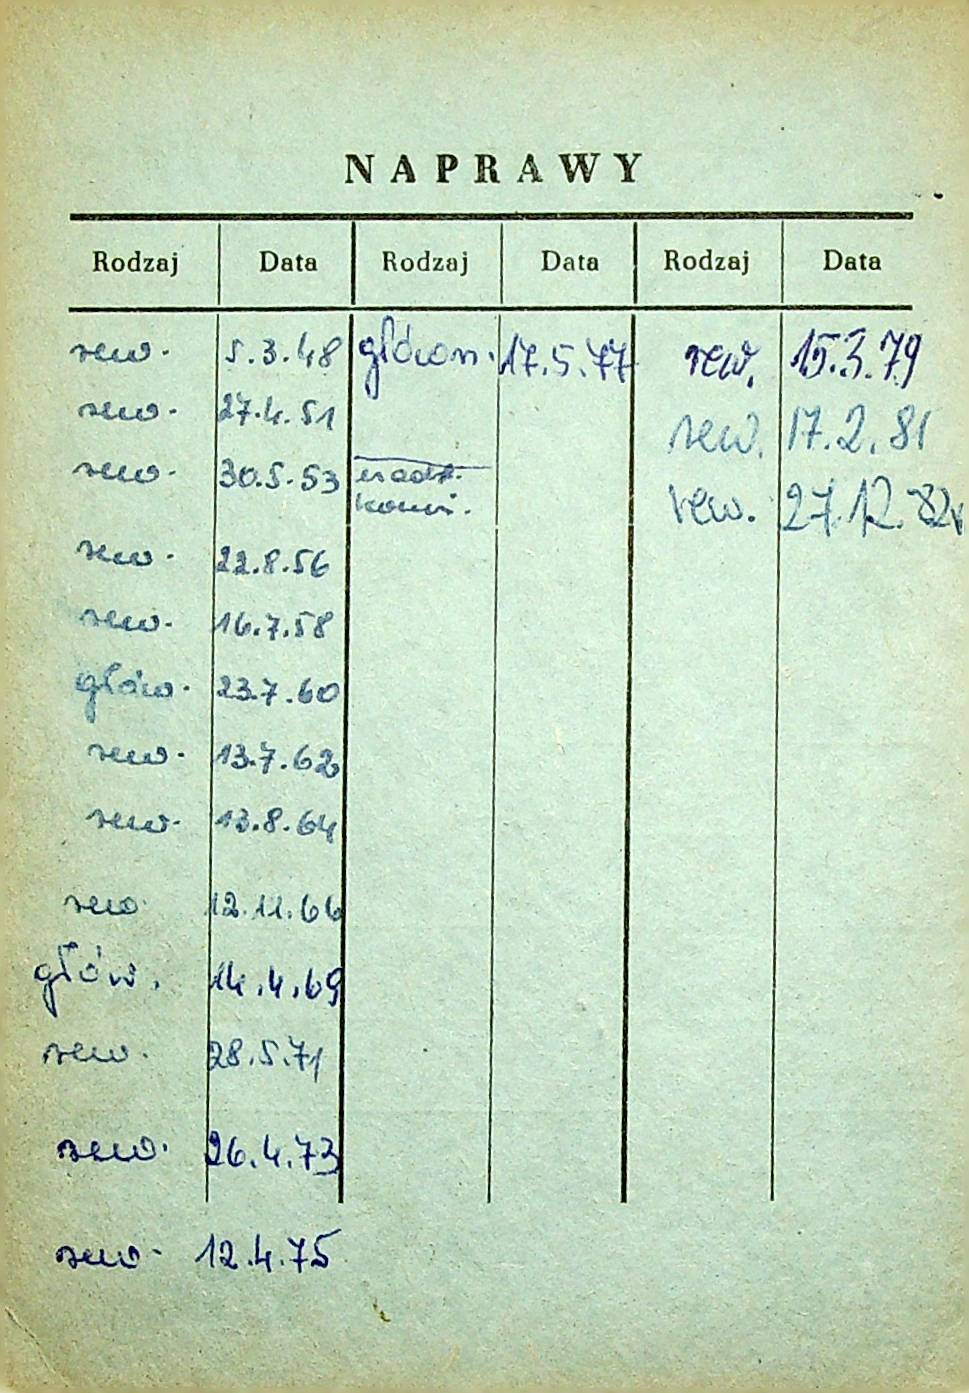 NAPRAWY
Rodzaj Data Rodzaj Data Rodzaj Data
rew. 5.3.48 główn. 17.5.77 rew. 15.3.79
rew. 27.4.51 rew. 17.2.81
rew. 30.5.53 rew. 27.12.82r
rew. 22.8.56
rew. 16.7.58
głów. 23.7.60
rew. 13.7.62
rew. 13.8.64
rew. 12.11.66
głów. 14.4.69
rew. 28.5.71
rew. 26.4.73
rew. 12.4.75